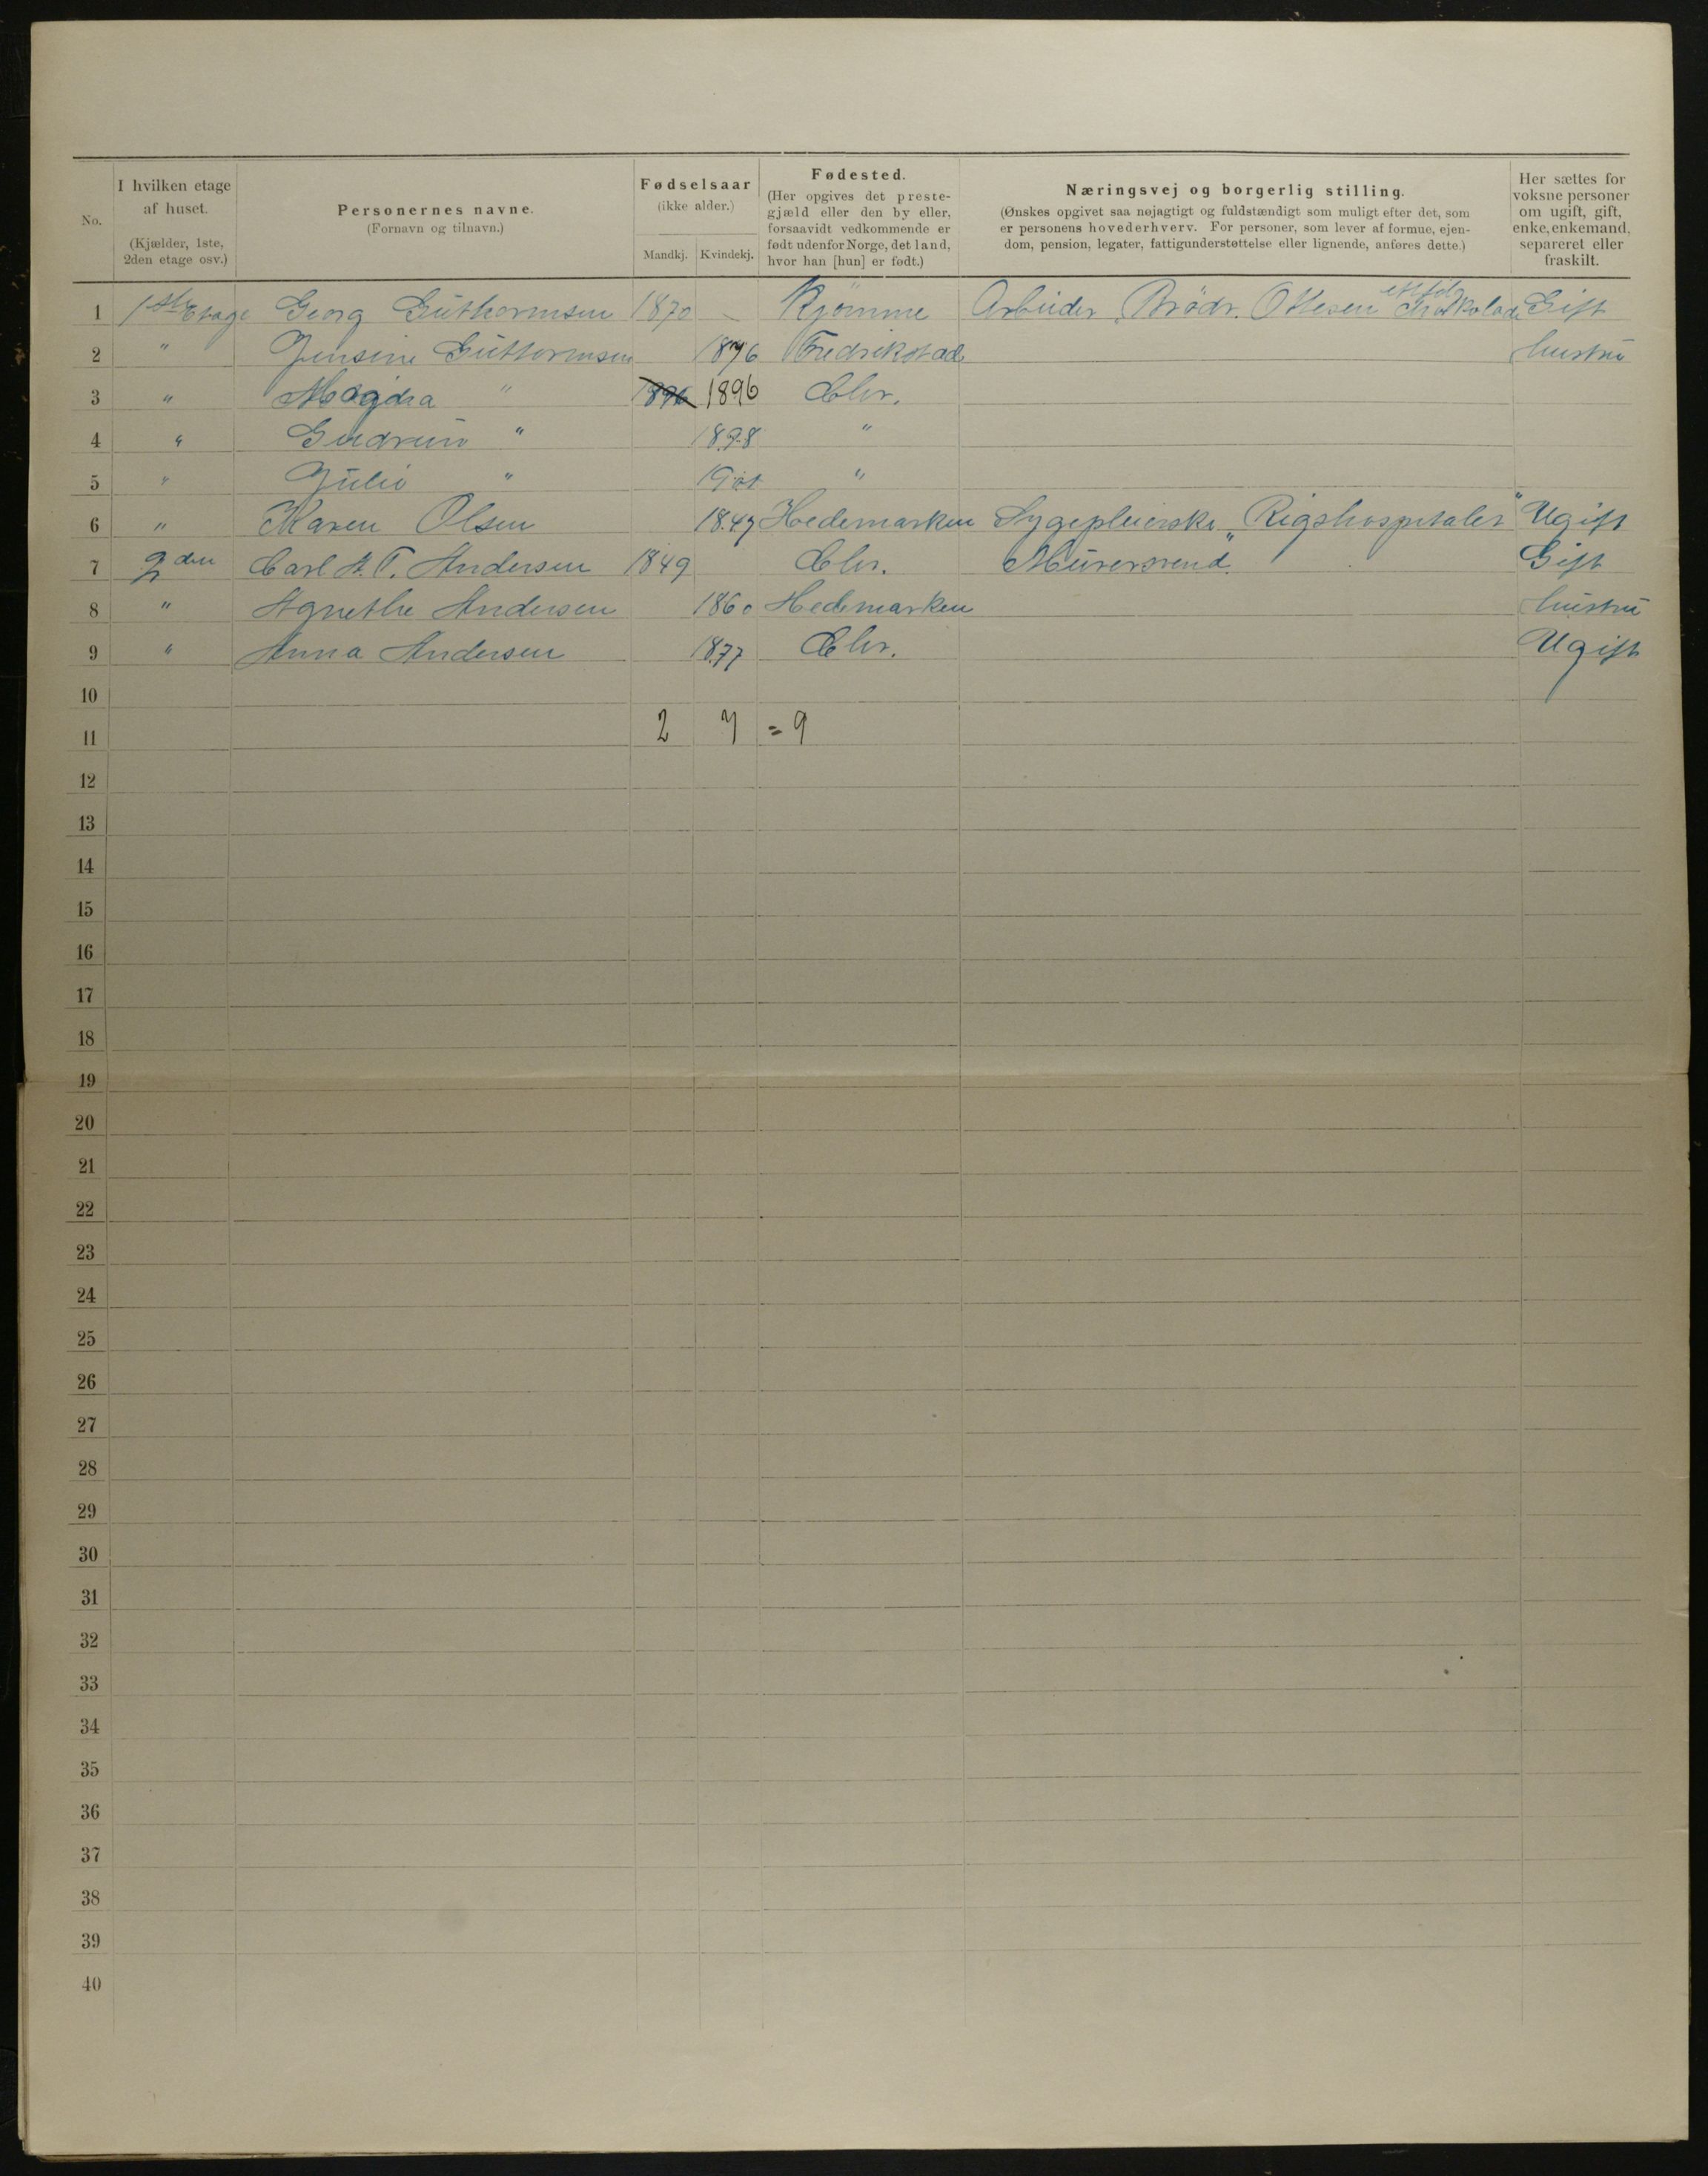 No.
I hvilken etage af huset. (Kjælder, 1ste, 2den etage osv.)
Personernes navne. (Fornavn og tilnavn.)
Fødselsaar (ikke alder.) Mandkj. Kvindekj.
Fødested. (Her opgives det prestegjæld eller den by eller, forsaavidt vedkommende er født udenfor Norge, det land, hvor han [hun] er født.)
Næringsvej og borgerlig stilling. (Ønskes opgivet saa nøjagtigt og fuldstændigt som muligt efter det, som er personens hovederhverv. For personer, som lever af formue, ejendom, pension, legater, fattigunderstøttelse eller lignende, anføres dette.)
Her sættes for voksne personer om ugift, gift, enke, enkemand, separeret eller fraskilt.
1 1ste Etage Georg Guthormsen 1870 – Kjømme Arbeider Brödr. Ottesen Chokolade Gift
2 " Jensine Guttormsen 1876 Fredrikstad hustru
3 " Magda " 1896 1896 Chr.
4 " Gudrun " 1898 "
5 " Julie " 1901 "
6 " Karen Olsen 1847 Hedemarken Sygepleierske „Rigshospitalet" Ugift
7 2den Carl A. T. Andersen 1849 Chr. Murersvend. Gift
8 " Agnethe Andersen 1860 Hedemarken hustru
9 " Anna Andersen 1877 Chr. Ugift
10
11 2 7 = 9
12
13
14
15
16
17
18
19
20
21
22
23
24
25
26
27
28
29
30
31
32
33
34
35
36
37
38
39
40